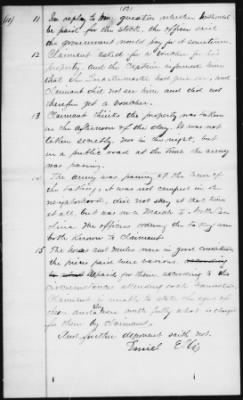 (13)
11 In reply to my question whether he should
be paid for the stock, the officer said
the government would pay for it sometime.
12 Claimant asked for a voucher for his
property, and the Captain informed him
that the Quartermaster had gone on, and
Claimant did not see him and did not
therefore get a voucher.
13 Claimant thinks the property was taken
in the afternoon of the day. It was not
taken secretly, nor in the night, but
in a public road at the time the army
was passing.
14 The army was passing at the time of
the taking; it was not camped in the
neighborhood, did not stay at that time
at all, but was on a March to North Car-
olina. The officers ordering the taking are
both known to Claimant.
15 The horse and mules were in good condition
the prices paid were various
paid for them, according to the
circumstances attending each transaction
Claimant is unable to state the ages of
them
for them by Claimant.
And further deponent saith not.
Daniel Ellis